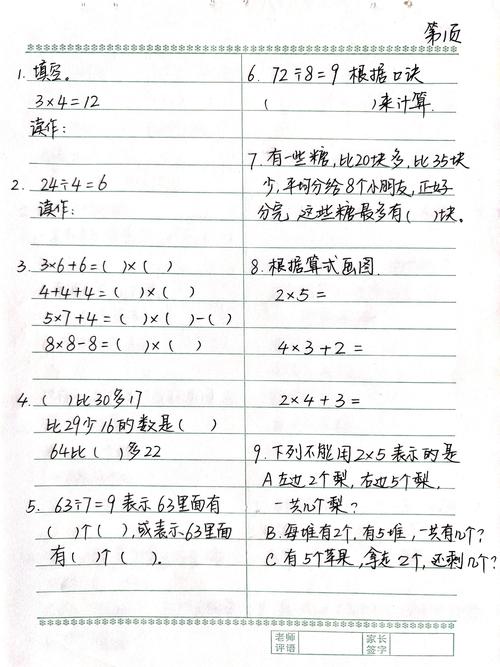 第1页
1. 填空。
3×4=12
读作:
2. 24÷4=6
读作:
3. 3×6+6=( )×( )
4+4+4=( )×( )
5×7+4=( )×( )-( )
8×8-8=( )×( )
4. ( )比30多17
比29少16的数是( )
64比( )多22
5. 63÷7=9 表示 63里面有
( )个( ),或表示63里面
有( )个( )。
6. 72÷8=9 根据口诀
( )来计算.
7. 有一些糖,比20块多,比35块
少,平均分给8个小朋友,正好
分完,这些糖最多有( )块。
8. 根据算式画图.
2×5=
4×3+2=
2×4+3=
9. 下列不能用2×5表示的是
A 左边2个梨,右边5个梨,
一共几个梨?
B. 每堆有2个,有5堆,一共有几个?
C 有5个苹果,拿走2个,还剩几个?
老师评语
家长签字